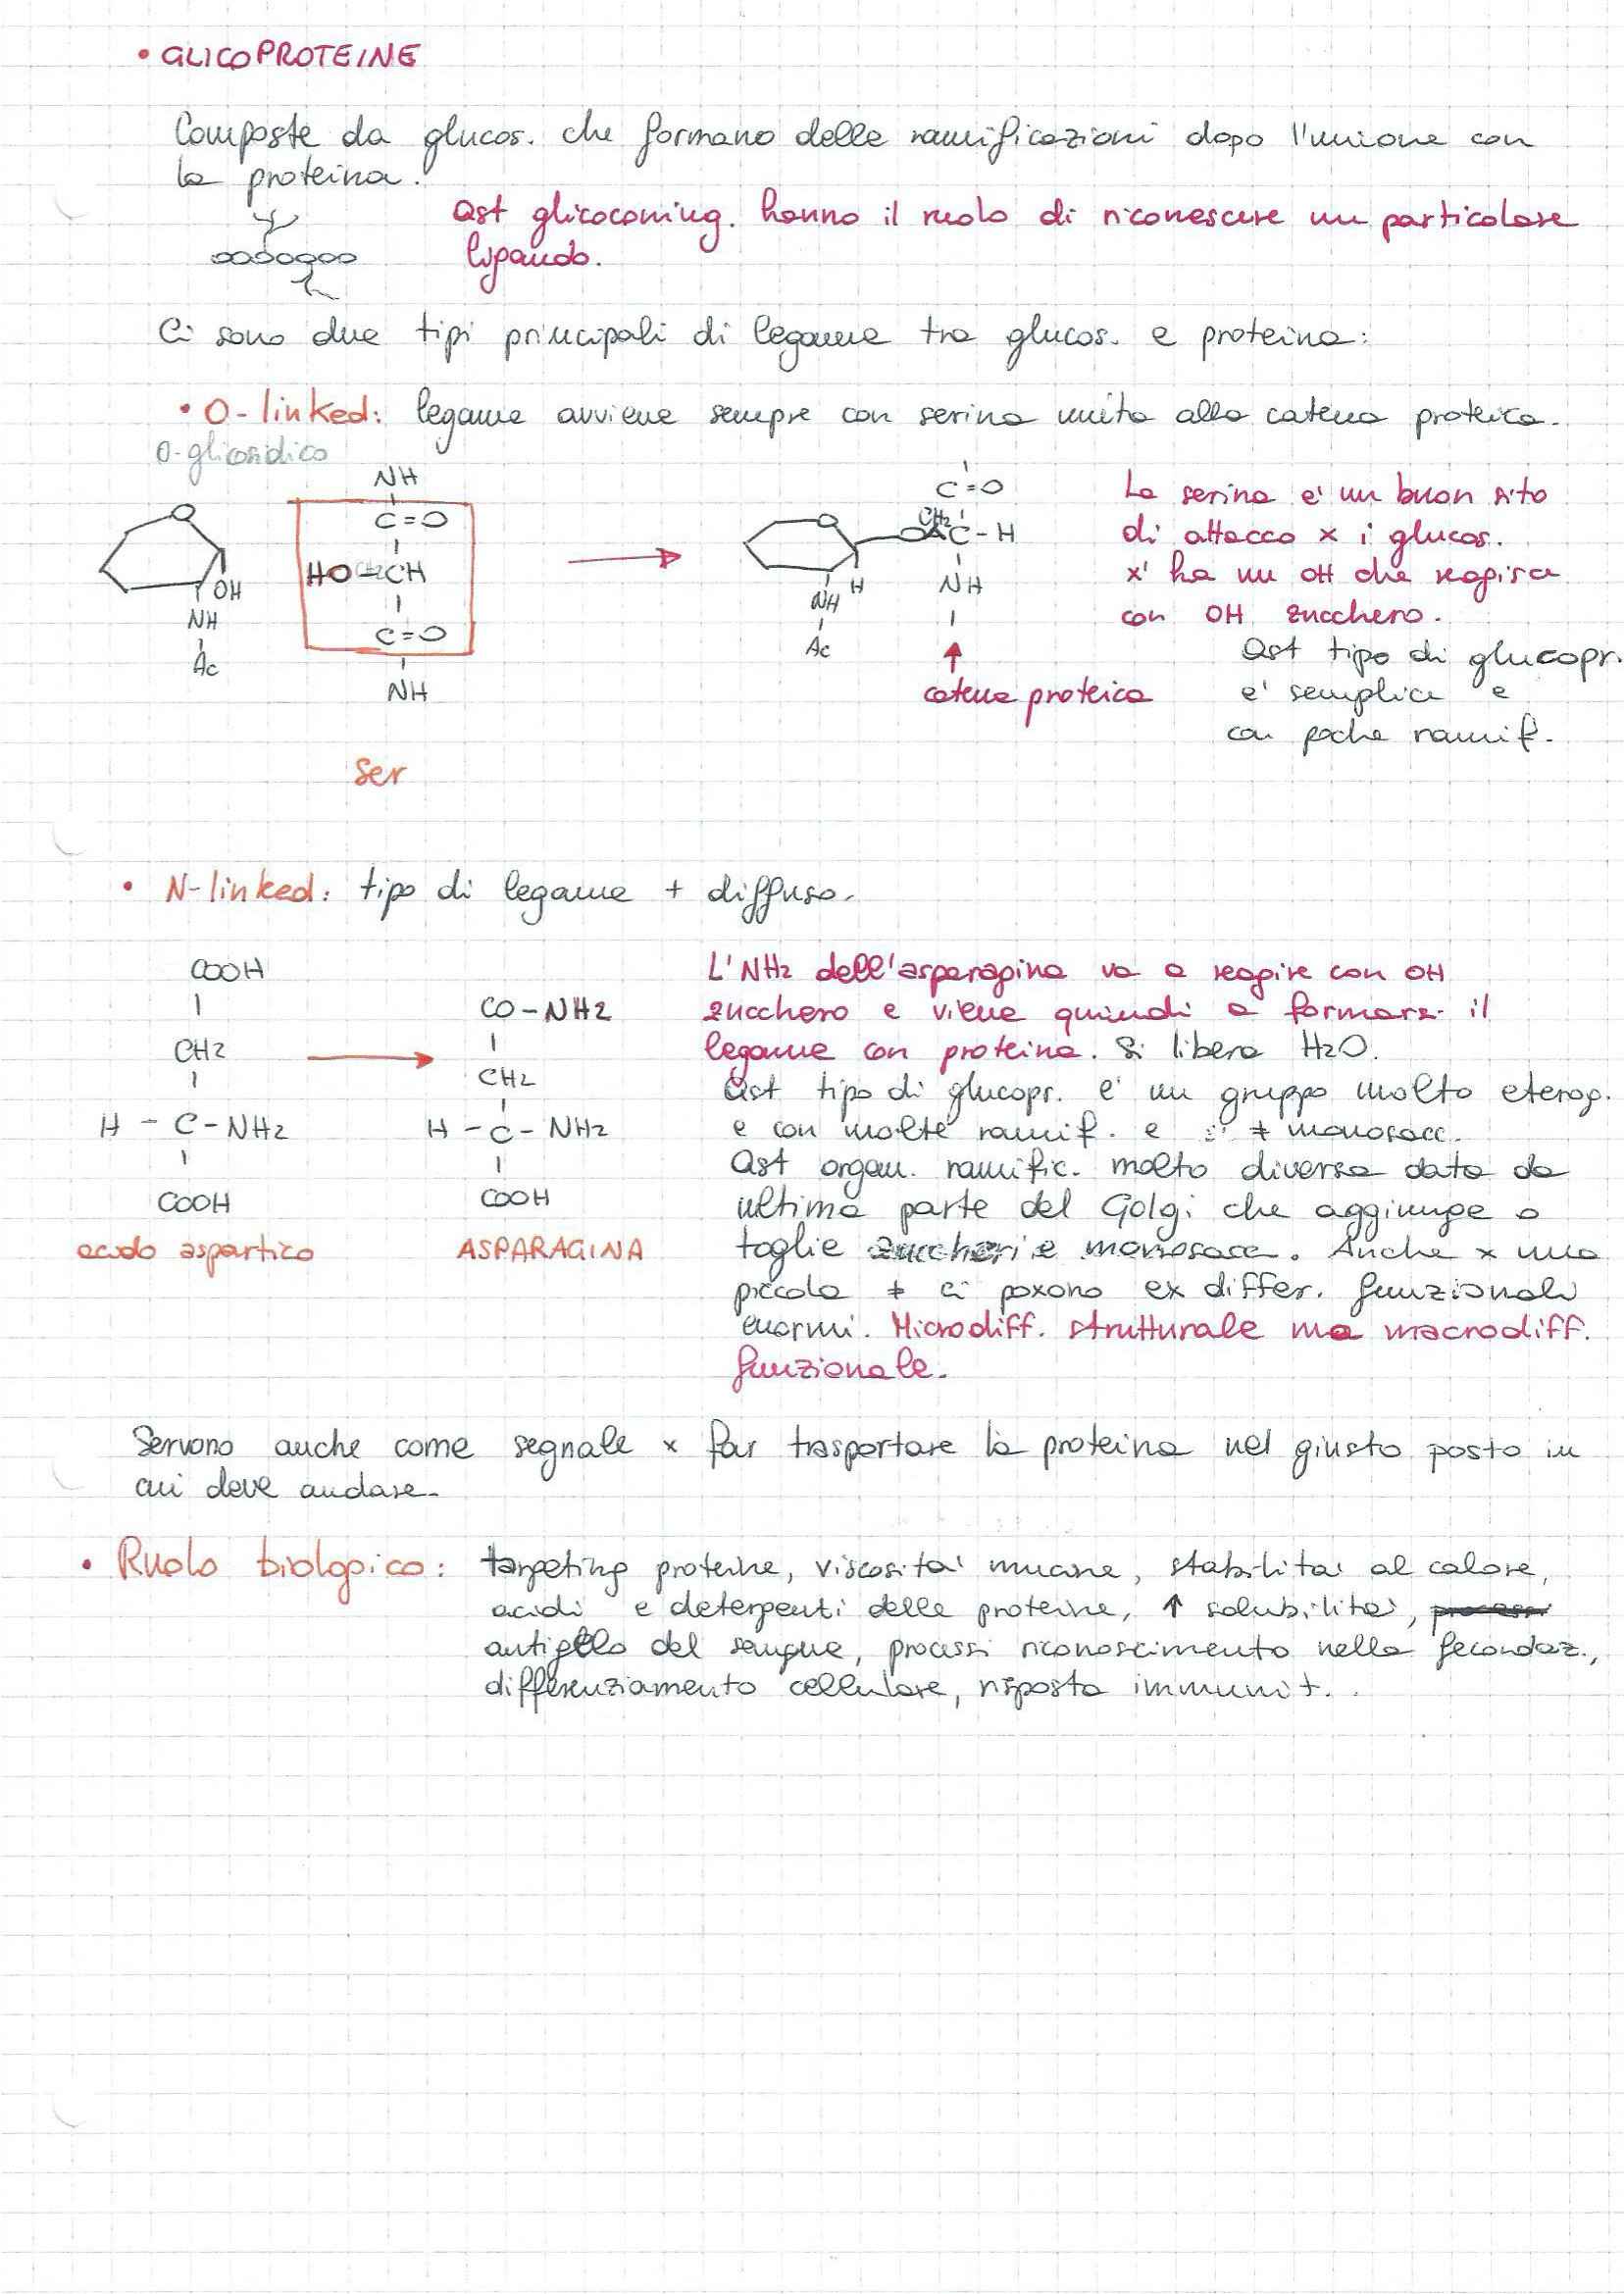 • GLICOPROTEINE
Composte da glucos. che formano delle ramificazioni dopo l'unione con
la proteina.
Qst glicoconiug. hanno il ruolo di riconoscere un particolare
ligando.
Ci sono due tipi principali di legame tra glucos. e proteina:
• O-linked: legame avviene sempre con serina unita alla catena proteica.
O-glicosidico
NH
C=O
HO-CH2-CH
C=O
NH
OH
NH
Ac
Ser
C=O
CH2
O C-H
H
NH
NH
Ac
catena proteica
La serina e' un buon sito
di attacco x i glucos.
x' ha un OH che reagisce
con OH zucchero.
Qst tipo di glucopr.
e' semplice e
con poche ramif.
• N-linked: tipo di legame + diffuso.
COOH
CH2
H - C - NH2
COOH
acido aspartico
CO-NH2
CH2
H - C - NH2
COOH
ASPARAGINA
L'NH2 dell'asparagina va a reagire con OH
zucchero e viene quindi a formarsi il
legame con proteina. Si libera H2O.
Qst tipo di glucopr. e' un gruppo molto eterog.
e con molte ramif. e ≠ monosacc.
Qst organ. ramific. molto diversa data da
ultima parte del Golgi che aggiunge o
toglie zuccheri e monosacc. Anche x una
piccola ≠ ci poxono ex differ. funzionali
enormi. Microdiff. strutturale ma macrodiff.
funzionale.
Servono anche come segnale x far trasportare la proteina nel giusto posto in
cui deve andare.
• Ruolo biologico: targeting proteine, viscosita' mucine, stabilita' al calore,
acidi e detergenti delle proteine, ↑ solubilita', processi
antigelo del sangue, processi riconoscimento nella fecondaz.,
differenziamento cellulare, risposta immunit..